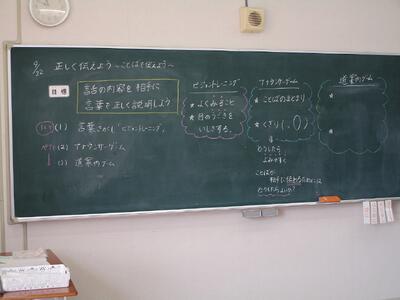 9/22 正しく伝えよう～ことばで伝えよう～
目標
話の内容を相手に
言葉で正しく説明しよう
(1) 言葉さがし ビジョントレーニング
(2) アナウンサーゲーム
(3) 道案内ゲーム
ビジョントレーニング
★ よくみること
★ 目のうごきを
いしきする。
アナウンサーゲーム
★ ことばのまとまり
★ くぎり(、。)
どうしたら
よみやすく
ことばが
相手に伝わるためには
どうしたらよいか?
道案内ゲーム
★
★